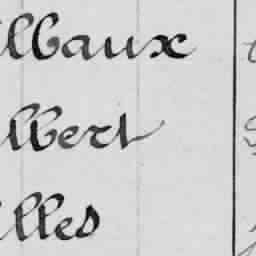 lbaux
lbert
lles